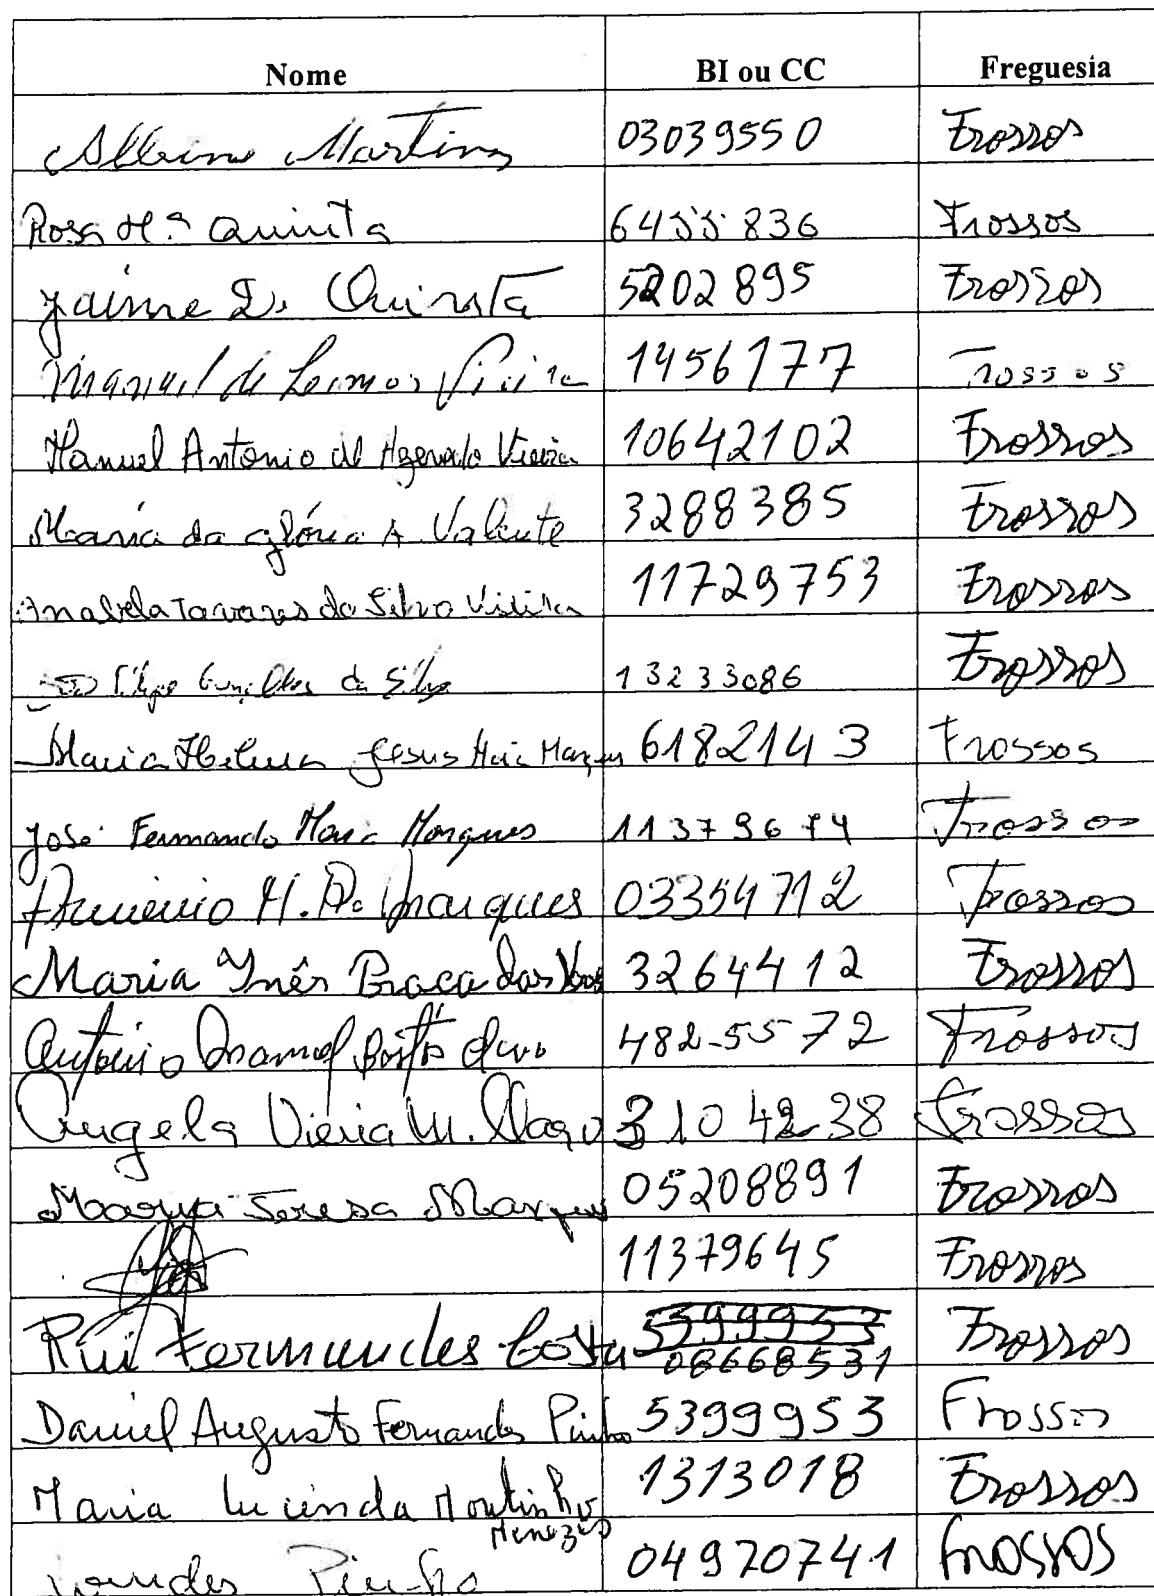 Nome BI ou CC Freguesia
Albino Martins 03039550 Frossos
Rosa M.ª Quinta 6455836 Frossos
Jaime D. Quinta 5202895 Frossos
Manuel de Lemos Vieira 1456177 Frossos
Manuel Antonio de Azevedo Vieira 10642102 Frossos
Maria da Glória A Valente 3288385 Frossos
Anabela Tavares da Silva Vieira 11729753 Frossos
Filipe Gonçalves da Silva 13233086 Frossos
Maria Helena Jesus Maia Marques 6182143 Frossos
José Fernando Maia Marques 11379674 Frossos
Arménio H. P. Marques 03354712 Frossos
Maria Inês Braca das 3264412 Frossos
António Manuel 4825572 Frossos
Angela Vieira M. 3104238 Frossos
Maria Teresa Marques 05208891 Frossos
11379645 Frossos
Rui Fernandes Costa 5399953 Frossos
08668531
Daniel Augusto Fernandes Pinho 5399953 Frossos
Maria Lucinda Moutinho 1313018 Frossos
Menezes
Lourdes Pinho 04970741 Frossos